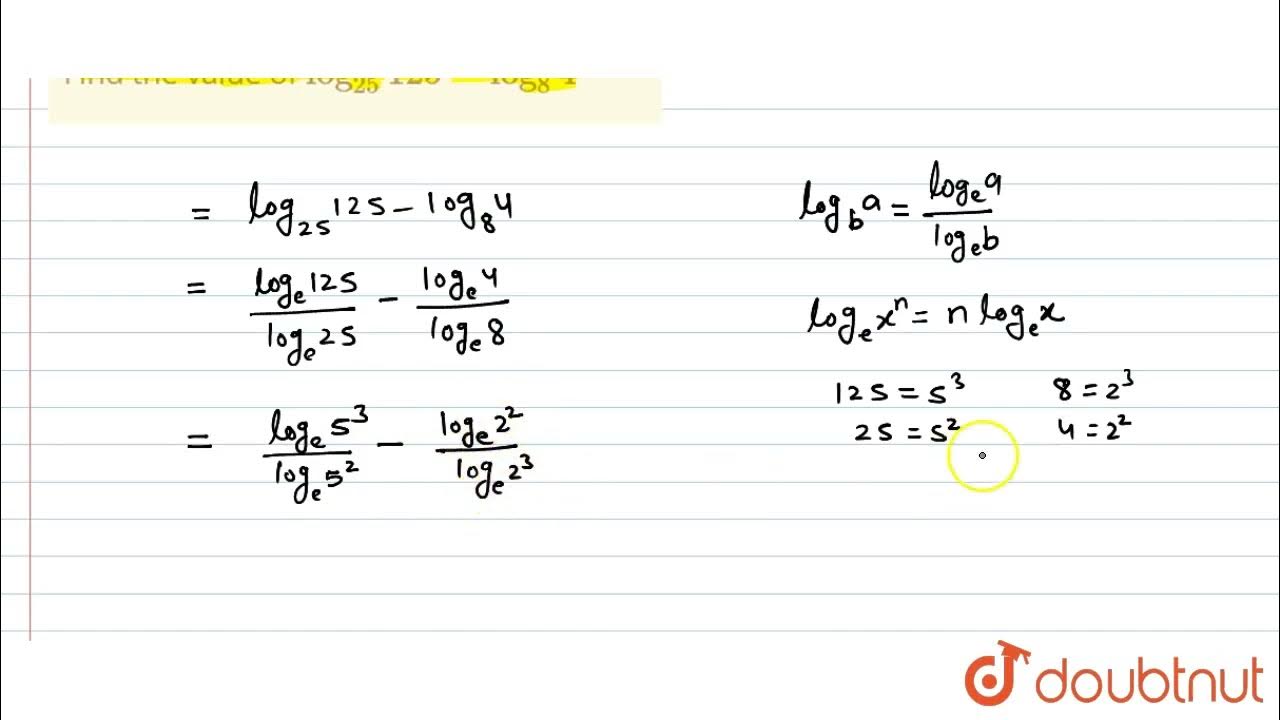 Find the value of log₂₅ 125 − log₈ 4
= log₂₅ 125 − log₈ 4
= logₑ 125 / logₑ 25 − logₑ 4 / logₑ 8
= logₑ 5³ / logₑ 5² − logₑ 2² / logₑ 2³
log_b a = logₑ a / logₑ b
logₑ xⁿ = n logₑ x
125 = 5³ 8 = 2³
25 = 5² 4 = 2²
doubtnut